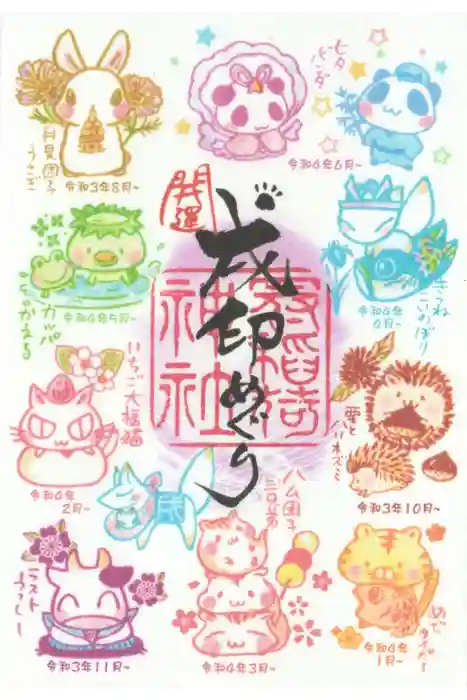 月見団子
うさぎ
令和3年8月~
令和4年6月~
七夕
ぱんだ
カッパ
ちのかえる
令和4年5月~
開運
戌印めぐり
神社
きつね
こいのぼり
令和4年
4月~
いちご大福猫
令和4年
2月~
栗と
ハリネズミ
令和3年10月~
歳
ハム団子
三兄弟
ラスト
うっしー
令和3年11月~
令和4年3月~
めで
タイガー
令和4年
1月~